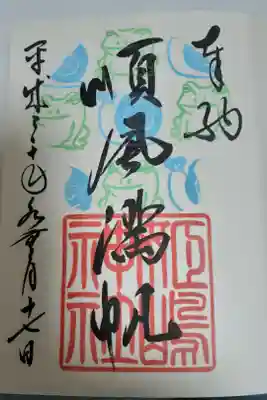 奉納
順風満帆
平成三十年水無月十七日
神社